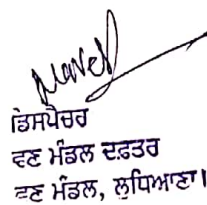 ਡਿਸਪੈਚਰ
ਵਣ ਮੰਡਲ ਦਫ਼ਤਰ
ਵਣ ਮੰਡਲ, ਲੁਧਿਆਣਾ।